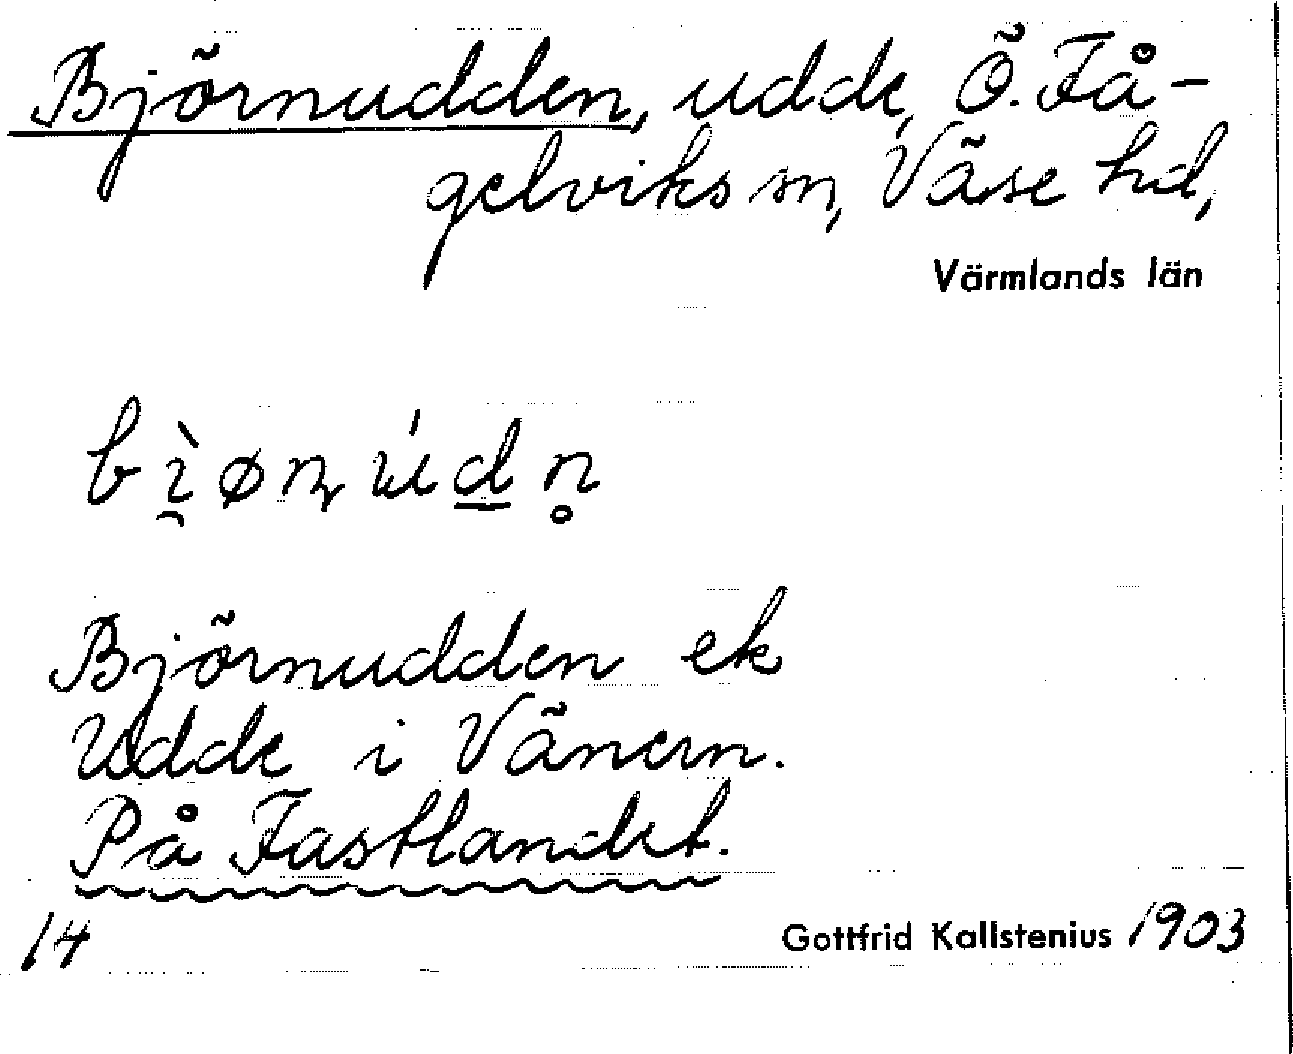 Björnudden, udde, Ö. Få-
gelviks sn, Väse hd,
Värmlands län
bì̯øn̨ úd̲n̥
Björnudden ek
Udde i Vänern.
På Fastlandet.
14 Gottfrid Kallstenius 1903